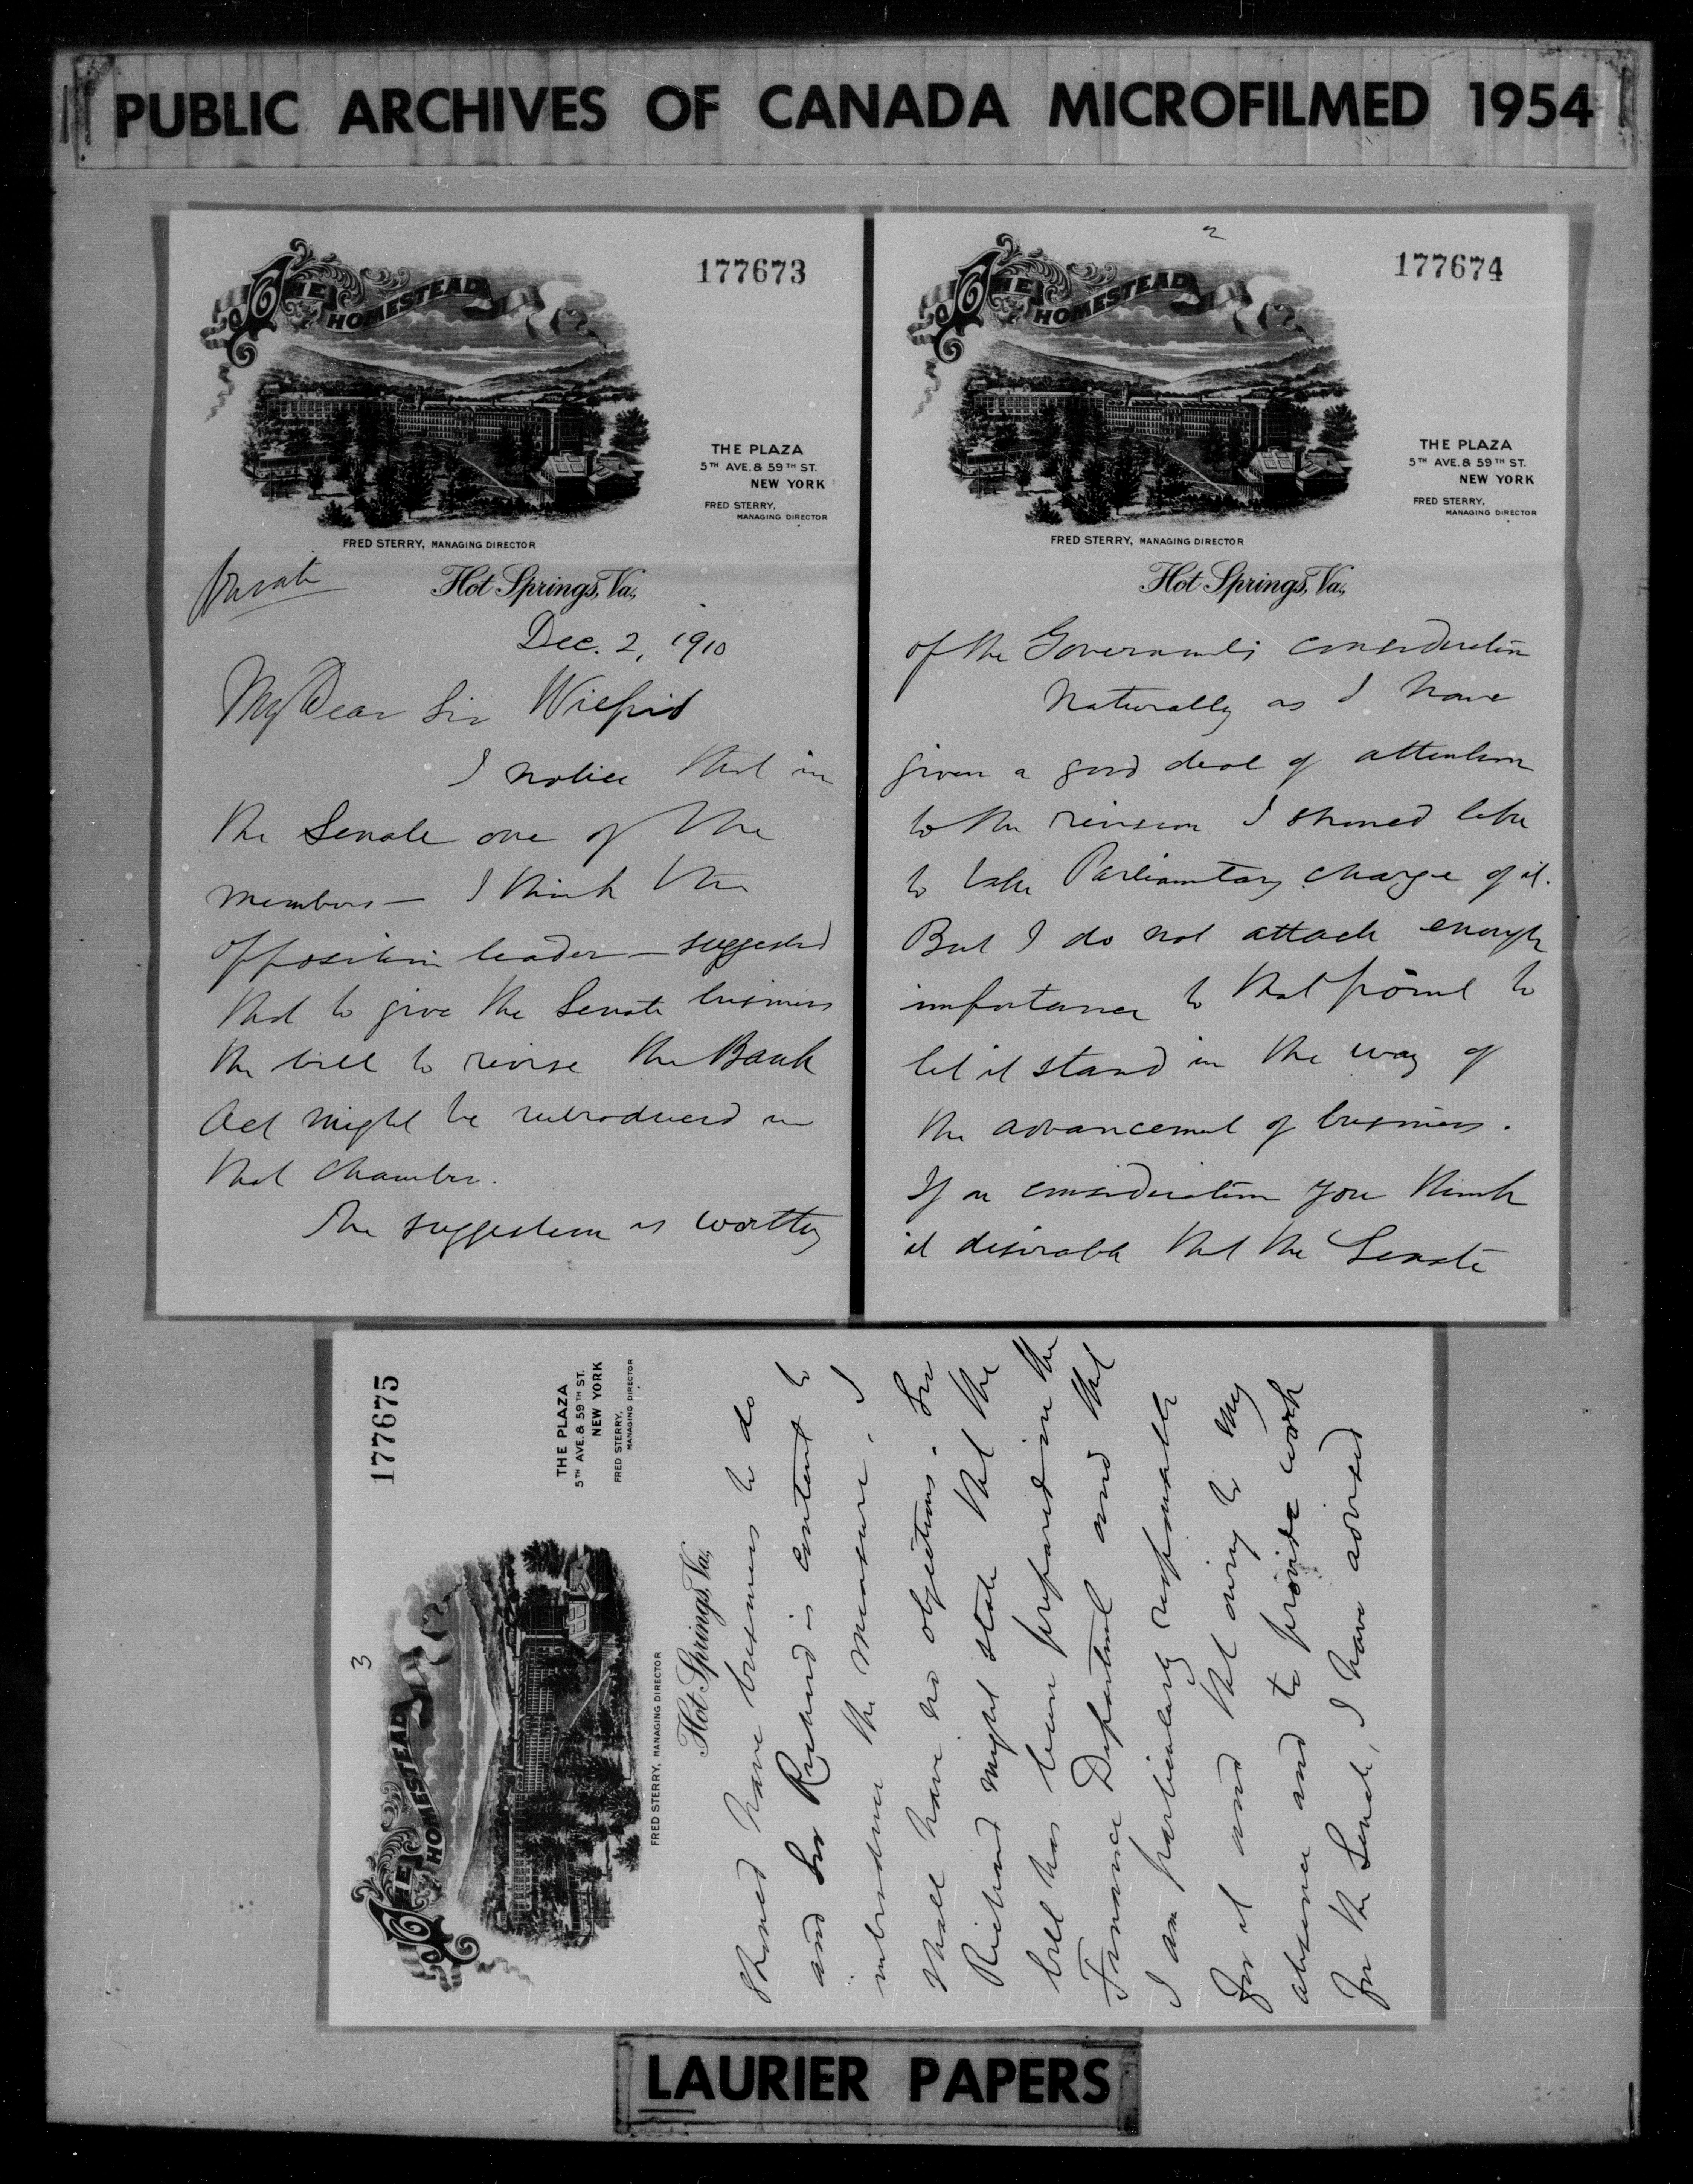 PUBLIC ARCHIVES OF CANADA MICROFILMED 1954
177673
THE HOMESTEAD
THE PLAZA
5TH AVE. & 59TH ST.
NEW YORK
FRED STERRY,
MANAGING DIRECTOR
FRED STERRY, MANAGING DIRECTOR
Private
Hot Springs, Va.,
Dec. 2, 1910
My Dear Sir Wilfrid
I notice that in
the Senate one of the
members — I think the
opposition leader — suggested
that to give the Senate business
the bill to revise the Bank
Act might be introduced in
that chamber.
The suggestion is worthy
2
177674
THE HOMESTEAD
THE PLAZA
5TH AVE. & 59TH ST.
NEW YORK
FRED STERRY,
MANAGING DIRECTOR
FRED STERRY, MANAGING DIRECTOR
Hot Springs, Va.,
of the Government's consideration
Naturally as I have
given a good deal of attention
to the revision I should like
to take Parliamentary charge of it.
But I do not attach enough
importance to that point to
let it stand in the way of
the advancement of business.
If on consideration you think
it desirable that the Senate
3
177675
THE HOMESTEAD
THE PLAZA
5TH AVE. & 59TH ST.
NEW YORK
FRED STERRY,
MANAGING DIRECTOR
FRED STERRY, MANAGING DIRECTOR
Hot Springs, Va.,
should have business to do
and Sir Richard is content to
introduce the measure, I
shall have no objections. Sir
Richard might state that the
bill has been prepared in the
Finance Department and that
I am particularly responsible
for it and that owing to my
absence and to provide work
for the Senate, I have advised
LAURIER PAPERS